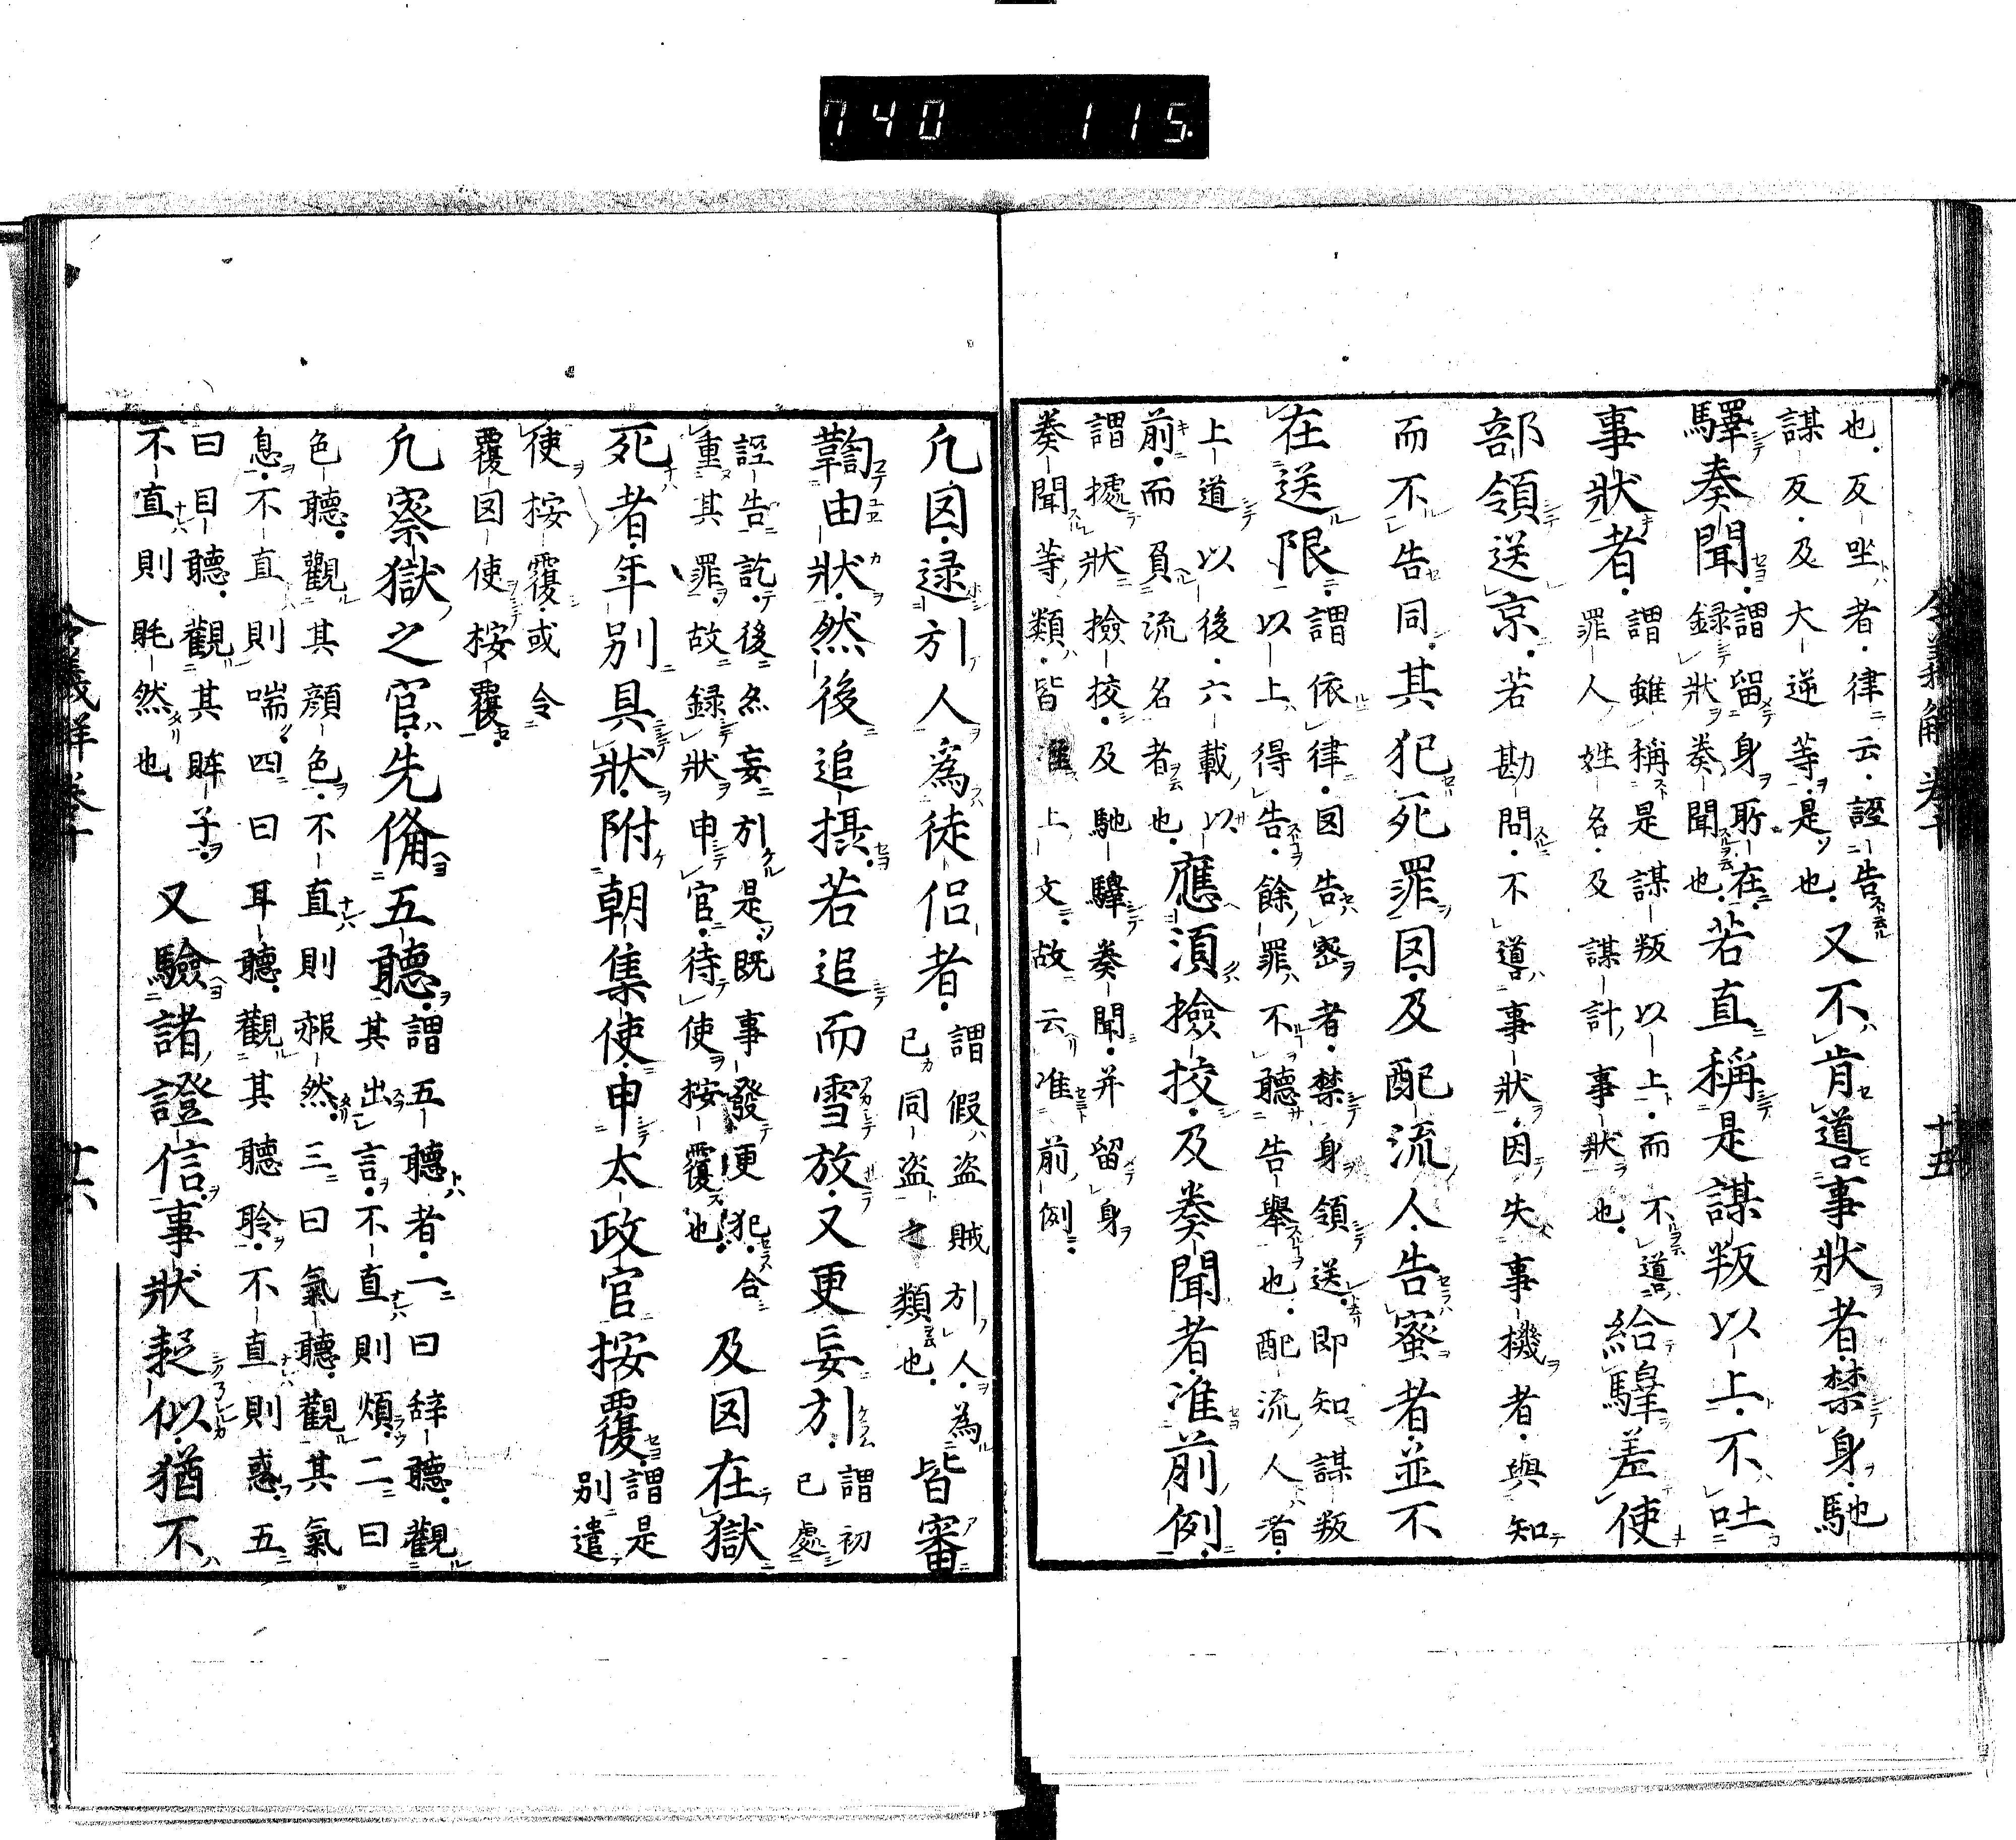 740 115
令義解卷十 十五
也反坐者律云誣告
謀反及大逆等是也
又不肯道事狀者禁身馳
驛奏聞
謂留身所在
録狀奏聞也
若直稱是謀叛以上不吐
事狀者
謂雖稱是謀叛以上而不道
罪人姓名及謀計事狀也
給驛差使
部領送京若勘問不道事狀因失事機者與知
而不告同其犯死罪囚及配流人告蜜者並不
在送限
謂依律囚告密者禁身領送即知謀叛
以上得告餘罪不聽告舉也配流人者
上道以後六載以
前而負流名者也
應須撿挍及奏聞者准前例
謂據狀撿挍及馳驛奏聞并留身
奏聞等類皆准上文故云准前例
凢囚逯引人為徒侶者
謂假盗賊引人為
已同盗之類也
皆審
鞫由狀然後追攝若追而雪放又更妄引
謂初
已處
誣告訖後糸妄引是既事發更犯合
重其罪故録狀申官待使按覆也
及囚在獄
死者年别具狀附朝集使申太政官按覆
謂是
别遣
使按覆或令
覆囚使按覆
凢察獄之官先俻五聽
謂五聽者一曰辞聽觀
其出言不直則煩二曰
色聽觀其顔色不直則赧然三曰氣聽觀其氣
息不直則喘四曰耳聽觀其聽聆不直則惑五
曰目聽觀其眸子
不直則眊然也
又驗諸證信事狀疑似猶不
令義解卷十 十六